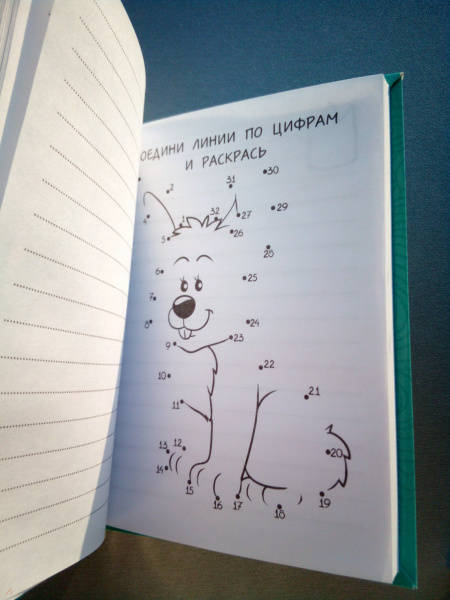 ОЕДИНИ ЛИНИИ ПО ЦИФРАМ
И РАСКРАСЬ
30
2 31
29
4 1 32 27
5 26
28
6 25
7
8 24
9 23
22
10
21
11
13 12 20
14
15 16 17 18 19